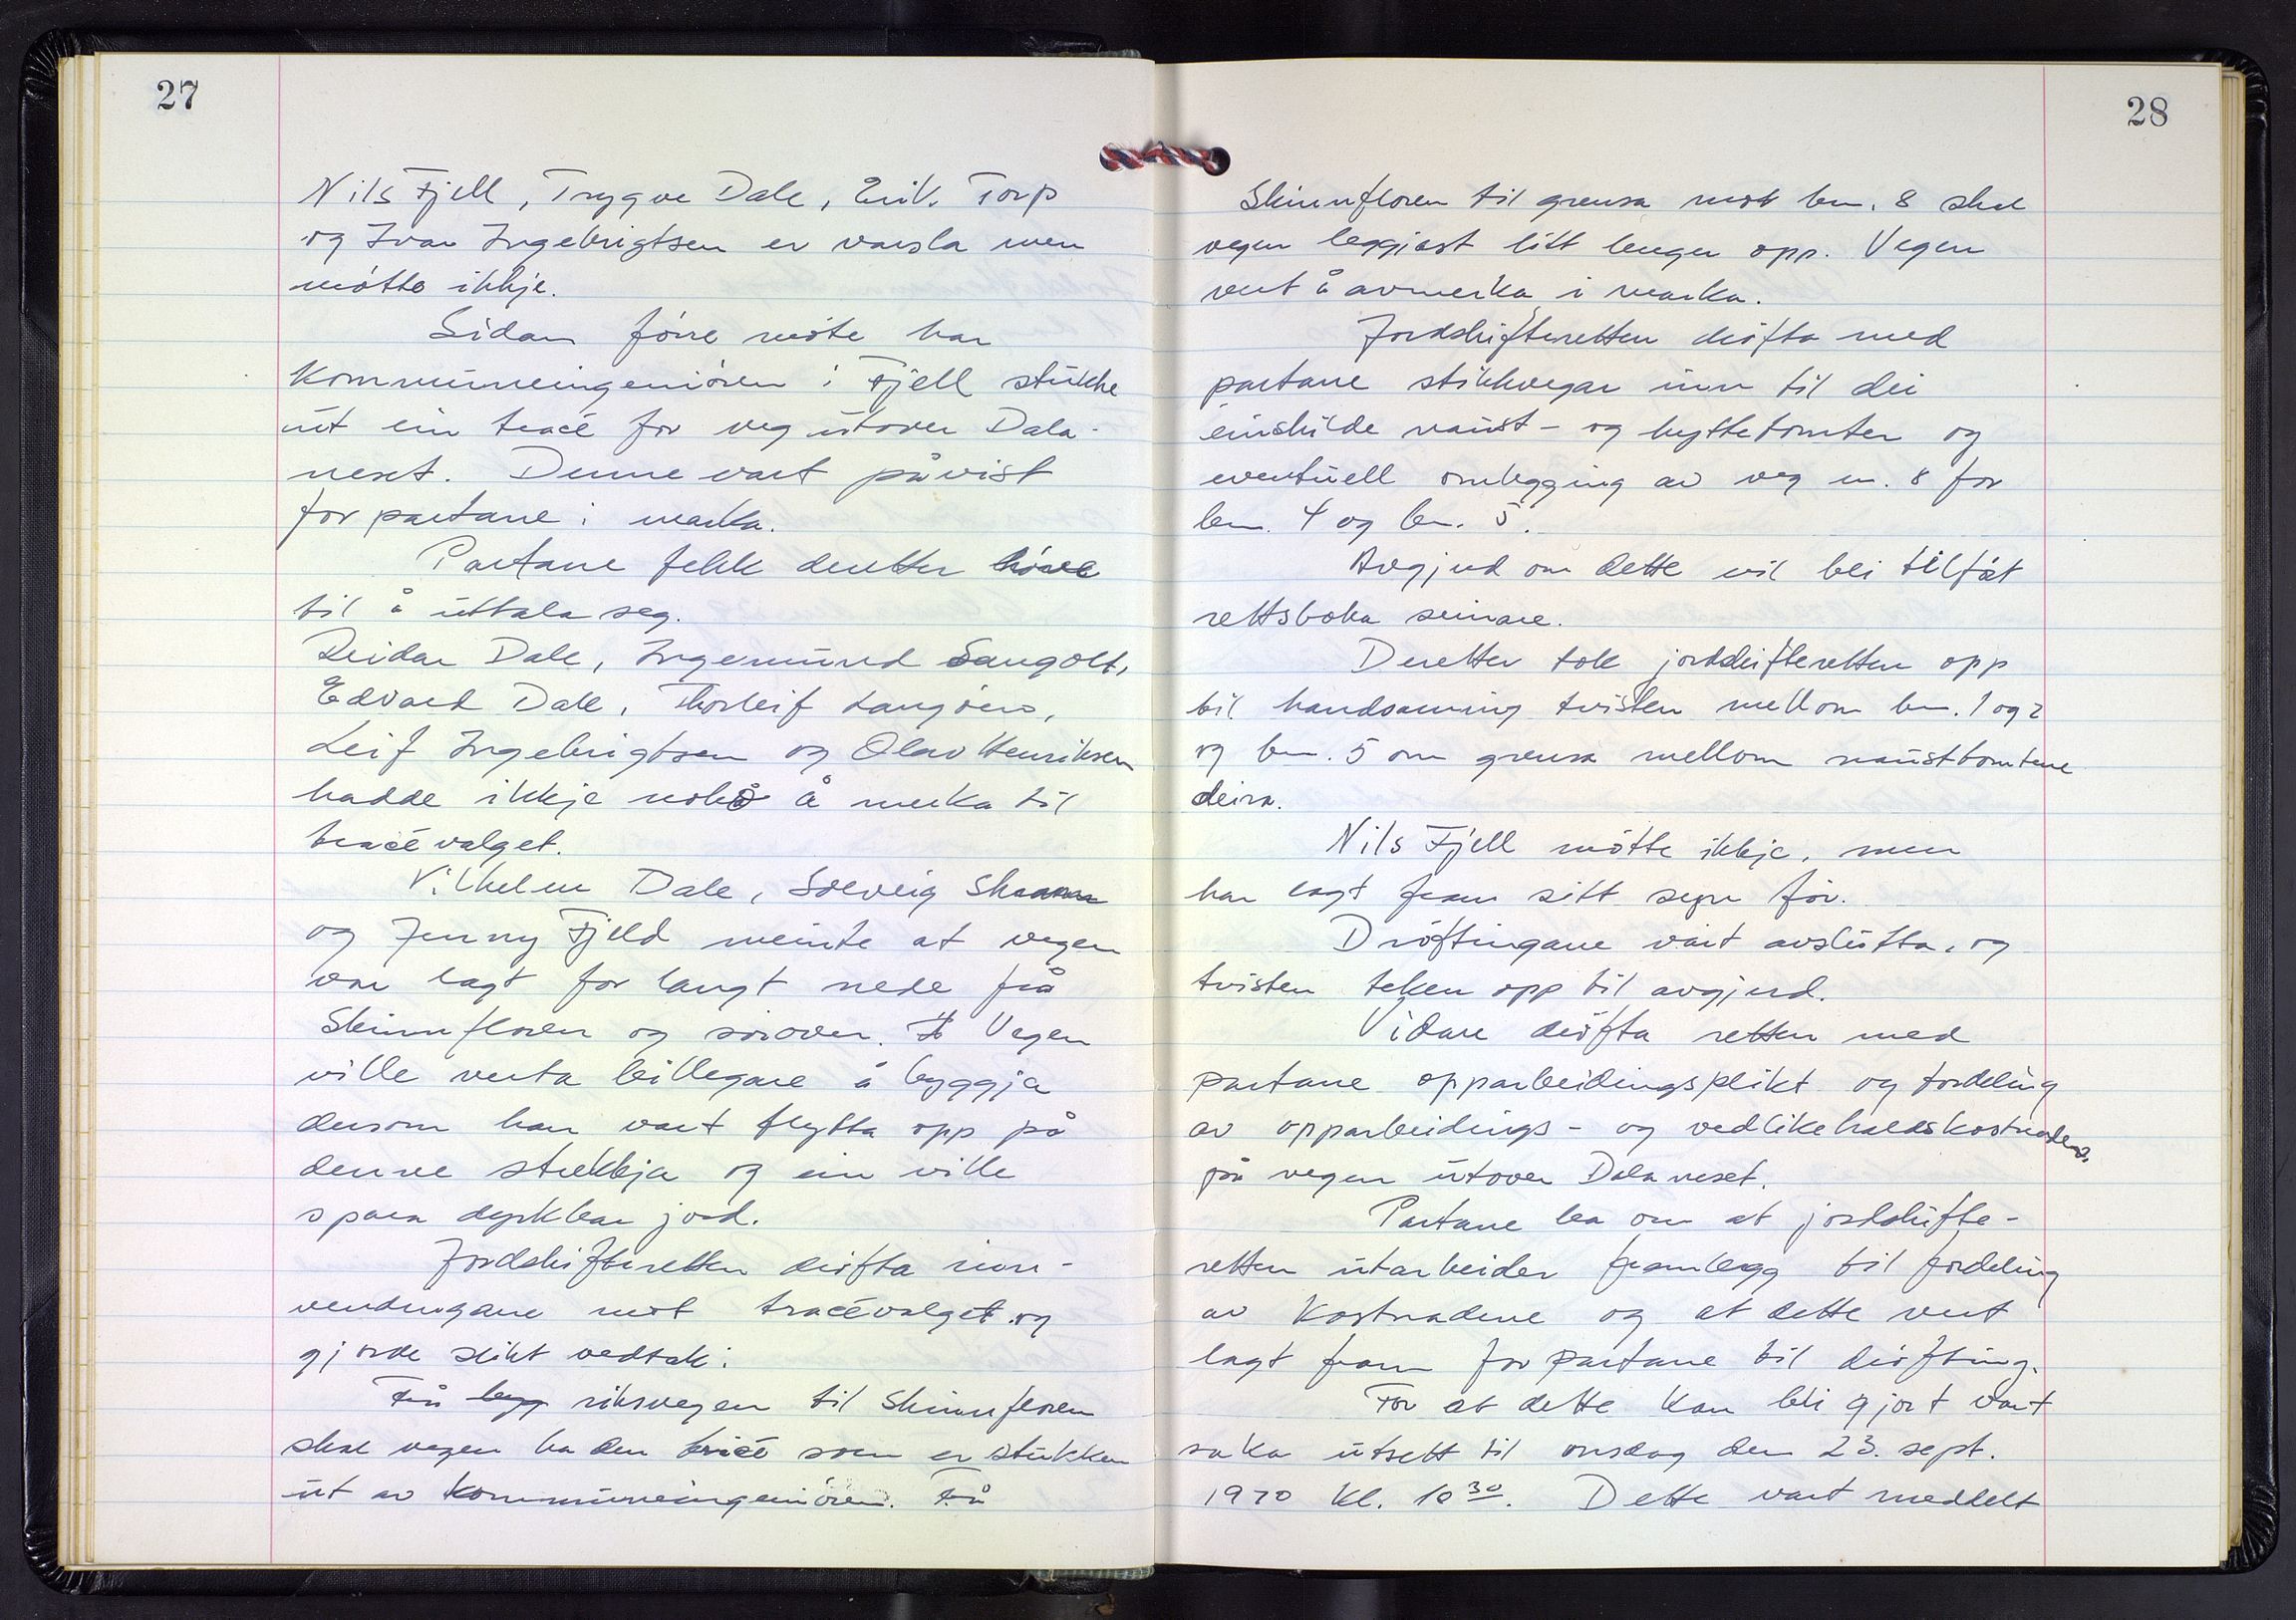 27
Nils Fjell, Trygve Dale, Erik Torp
og Ivar Ingebrigtsen er varsla men
møtte ikkje.
Sidan førre møte har
kommuneingeniøren i Fjell stukke
ut ein tracé for veg utover Dala-
neset. Denne vart påvist
for partane i marka.
Partane fekk deretter høve
til å uttala seg.
Reidar Dale, Ingemund Sangolt,
Edvard Dale, Thorleif Langøen,
Leif Ingebrigtsen og Olav Henriksen
hadde ikkje noko å merka til
tracévalget.
Vilhelm Dale, Solveig
og Jenny Fjeld meinte at vegen
var lagt for langt nede frå
Skinnfloren og sørover. Vegen
ville verta billegare å byggja
dersom han vart flytta opp på
denne strekkja og ein ville
spara dyrkbar jord.
Jordskifteretten drøfta inn-
vendingane mot tracévalget og
gjorde slikt vedtak:
Frå riksvegen til Skinnfloren
skal vegen ha den tracé som er stukken
ut av kommuneingeniøren. Frå
28
Skinnfloren til grensa mot bn. 8 skal
vegen leggjast litt lenger opp. Vegen
vert å avmerka i marka.
Jordskifteretten drøfta med
partane stikkvegar inn til dei
einskilde naust- og hyttetomter og
eventuell omlegging av veg nr. 8 for
bn. 4 og bn. 5.
Avgjerd om dette vil bli tilført
rettsboka seinare.
Deretter tok jordskifteretten opp
til handsaming tvisten mellom bn. 1 og 2
og bn. 5 om grensa mellom nausttomtene
deira.
Nils Fjell møtte ikkje, men
har lagt fram sitt syn før.
Drøftingane vart avslutta, og
tvisten teken opp til avgjerd.
Vidare drøfta retten med
partane opparbeidingsplikt og fordeling
av opparbeidings- og vedlikehaldskostnadene
på vegen utover Dalaneset.
Partane ba om at jordskifte-
retten utarbeider framlegg til fordeling
av kostnadene og at dette vert
lagt fram for partane til drøfting.
For at dette kan bli gjort vart
saka utsett til onsdag den 23. sept.
1970 kl. 10 30. Dette vart meddelt